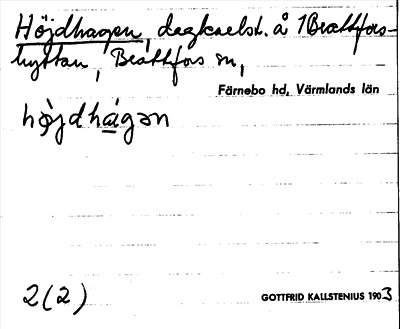 Höjdhagen, dagkarlst. å 1 Brattfors-
hyttan, Brattfors sn,
Färnebo hd, Värmlands län
hö̀jdhágən
2(2)
GOTTFRID KALLSTENIUS 1903